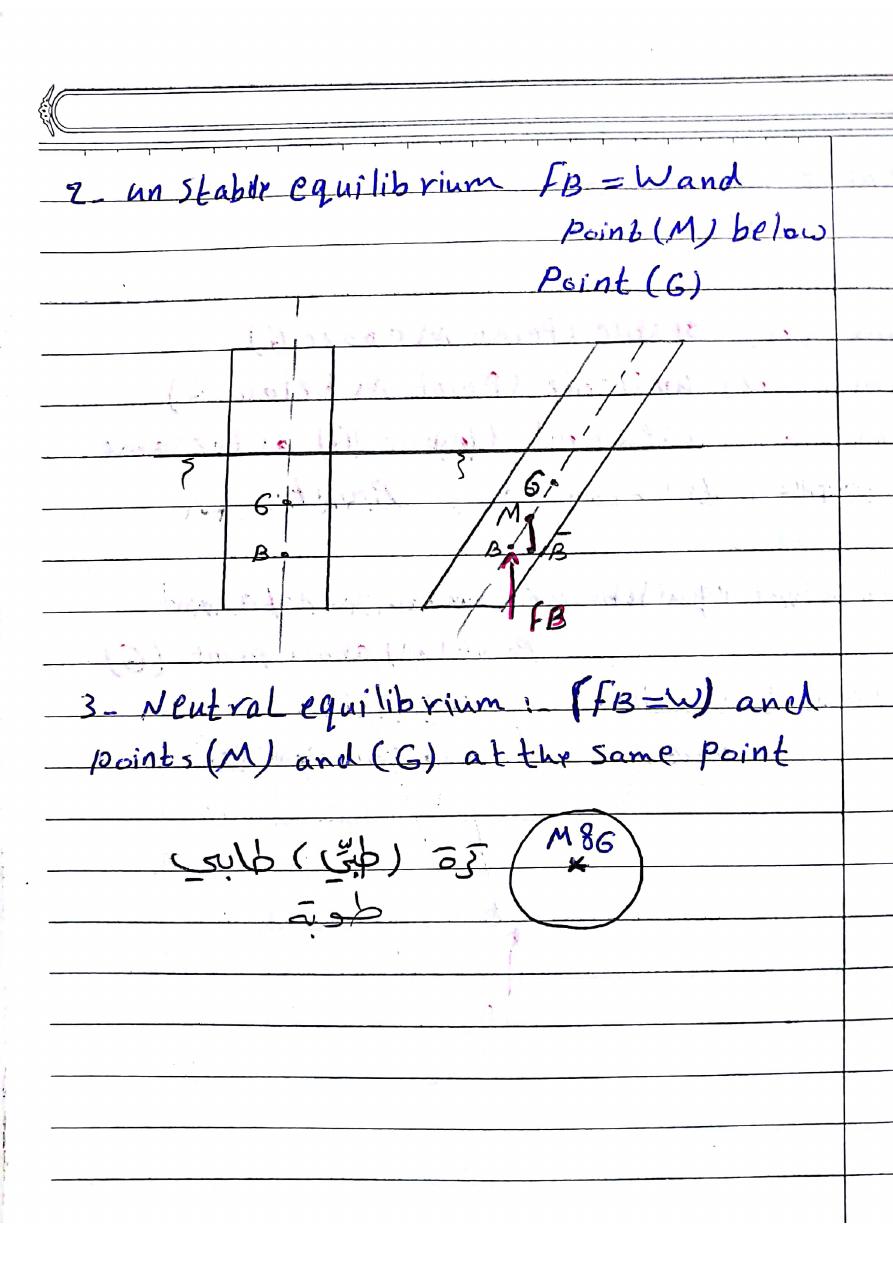 2- unstable equilibrium FB = W and
Point (M) below
Point (G)
G
B
G
M
B
B̅
FB
3- Neutral equilibrium :- (FB=W) and
points (M) and (G) at the same point
M&G
كرة (طبّي) طابي
طوبة